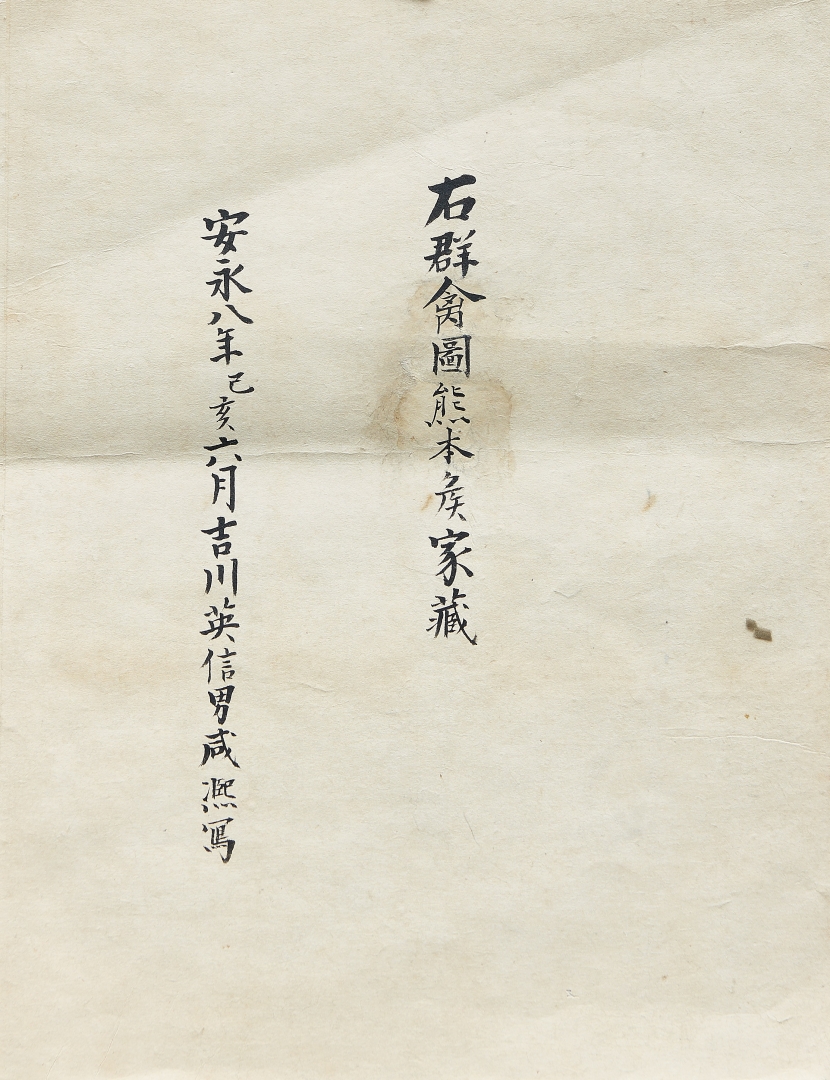 右群禽圖熊本矦家藏
安永八年己亥六月吉川英信男咸凞寫